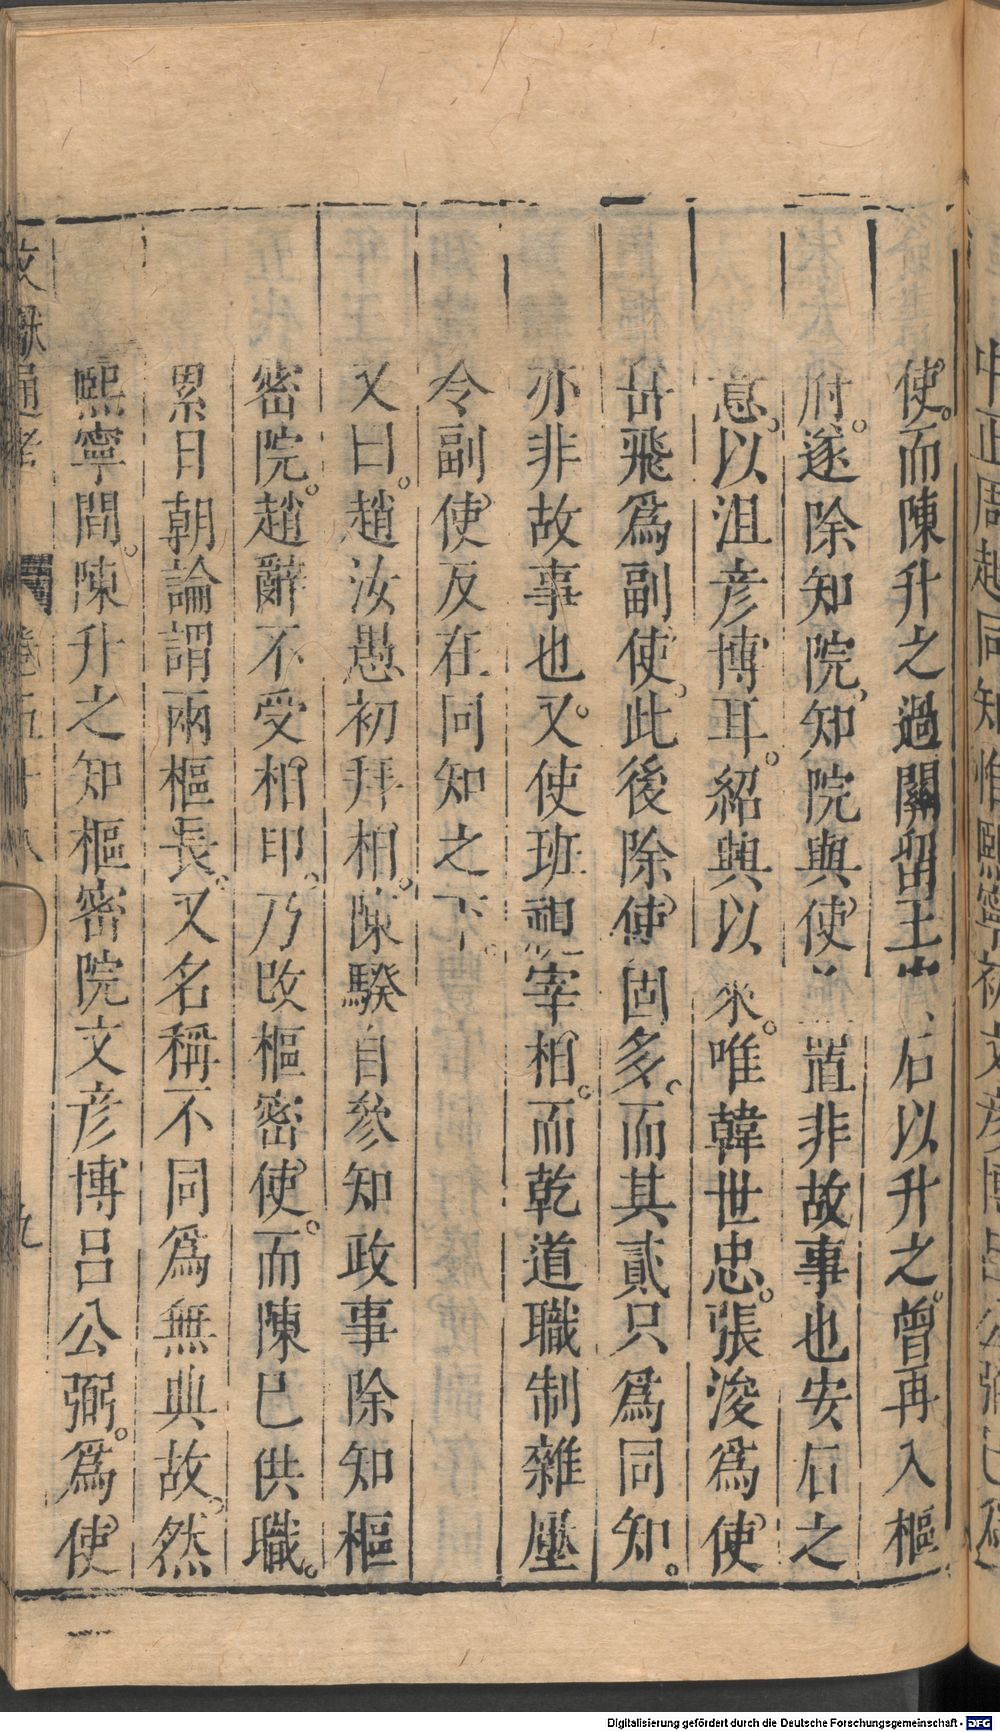 使而陳升之過闕留王 石以升之曾再入樞
府遂除知院知院與使 置非故事也安石之
意以沮彥博耳紹興以來唯韓世忠張浚爲使
岳飛爲副使此後除使固多而其貳只爲同知
亦非故事也又使班視宰相而乾道職制雜壓
令副使反在同知之下
又曰趙汝愚初拜相陳騤自參知政事除知樞
密院趙辭不受相印乃改樞密使而陳已供職
累日朝論謂兩樞長又名稱不同爲無典故然
熙寧間陳升之知樞密院文彥博呂公弼爲使
文獻通考 卷五十八 九
Digitalisierung gefördert durch die Deutsche Forschungsgemeinschaft - DFG